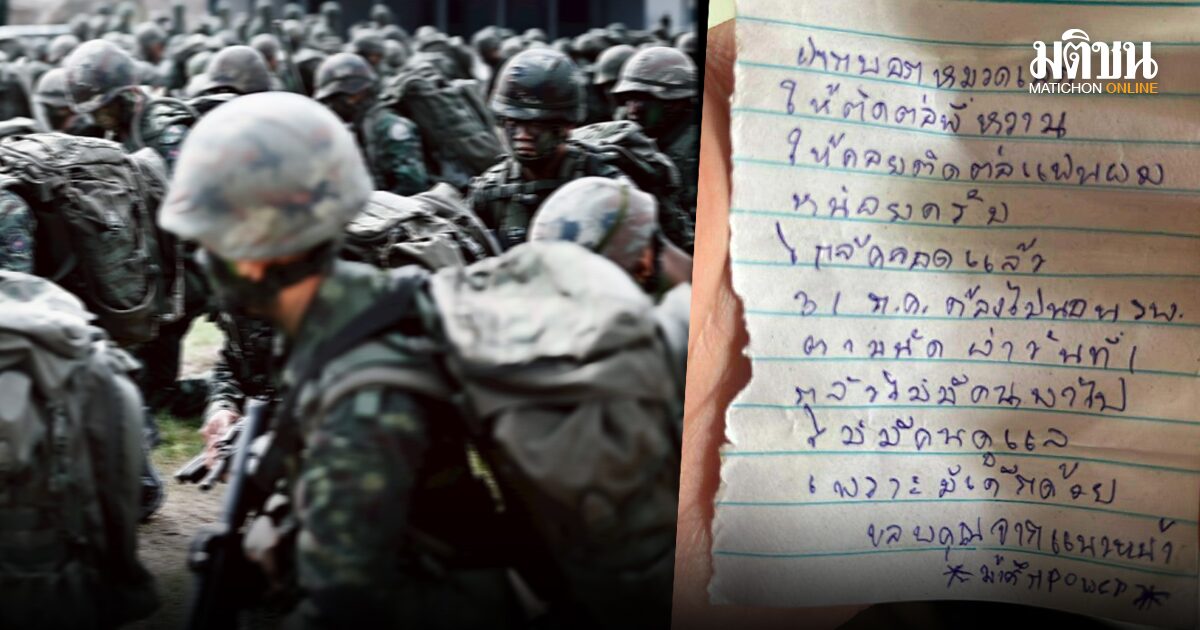 มติชน
MATICHON ONLINE
ฝากบอกหมวด
ให้ติดต่อพี่หวาน
ให้คอยติดต่อแฟนผม
หน่อยครับ
ใกล้คลอดแล้ว
31 ก.ค. ต้องไปนอน รพ.
ตามนัด ผ่าวันที่ 1
กลัวไม่มีคนพาไป
ไม่มีคนดูแล
เพราะมีเด็กด้วย
ขอบคุณจากแนวหน้า